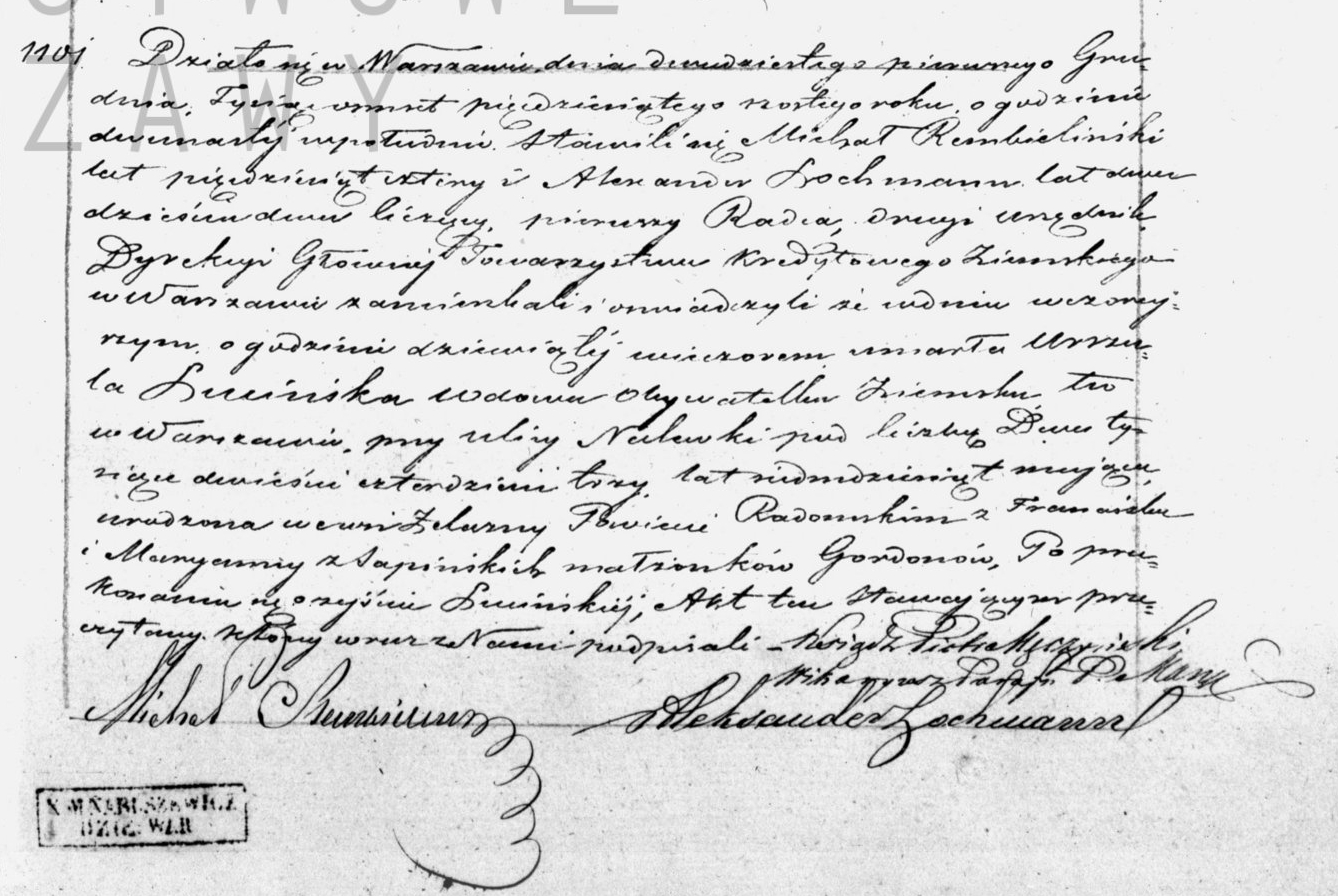 TWOWE
ZAWY
1101. Działo się w Warszawie, dnia dwudziestego pierwszego Gru-
dnia, Tysiąc ośmset pięćdziesiątego szóstego roku, o godzinie
dwunastéj w południe. Stawili się Michał Rembieliński
lat pięćdziesiąt cztery i Alexander Lochmann lat dwa
dzieścia dwa liczący, pierwszy Radca, drugi urzędnik,
Dyrekcyi Głównéj Towarzystwa Kredytowego Ziemskiego
w Warszawie zamieszkali i oświadczyli że w dniu wczoraj-
szym, o godzinie dziewiątéj wieczorem, umarła Urszu-
la Lucińska wdowa Obywatelka Ziemska, tu
w Warszawie, przy ulicy Nalewki pod liczbą Dwa ty-
siące dwieście czterdzieści trzy, lat siedmdziesiąt mająca,
urodzona we wsi Żelazny Powiecie Radomskim z Franciszka
i Maryanny z Sapińskich małżonków Gordonów, Po prze-
konaniu się o zejściu Lucińskiéj, Akt ten stawającym prze-
czytany, który wraz z Nami podpisali – Ksiądz Piotr
Wikaryusz Parafii P. Maryi
Michał Aleksander Lochmann
DZIE. WAR